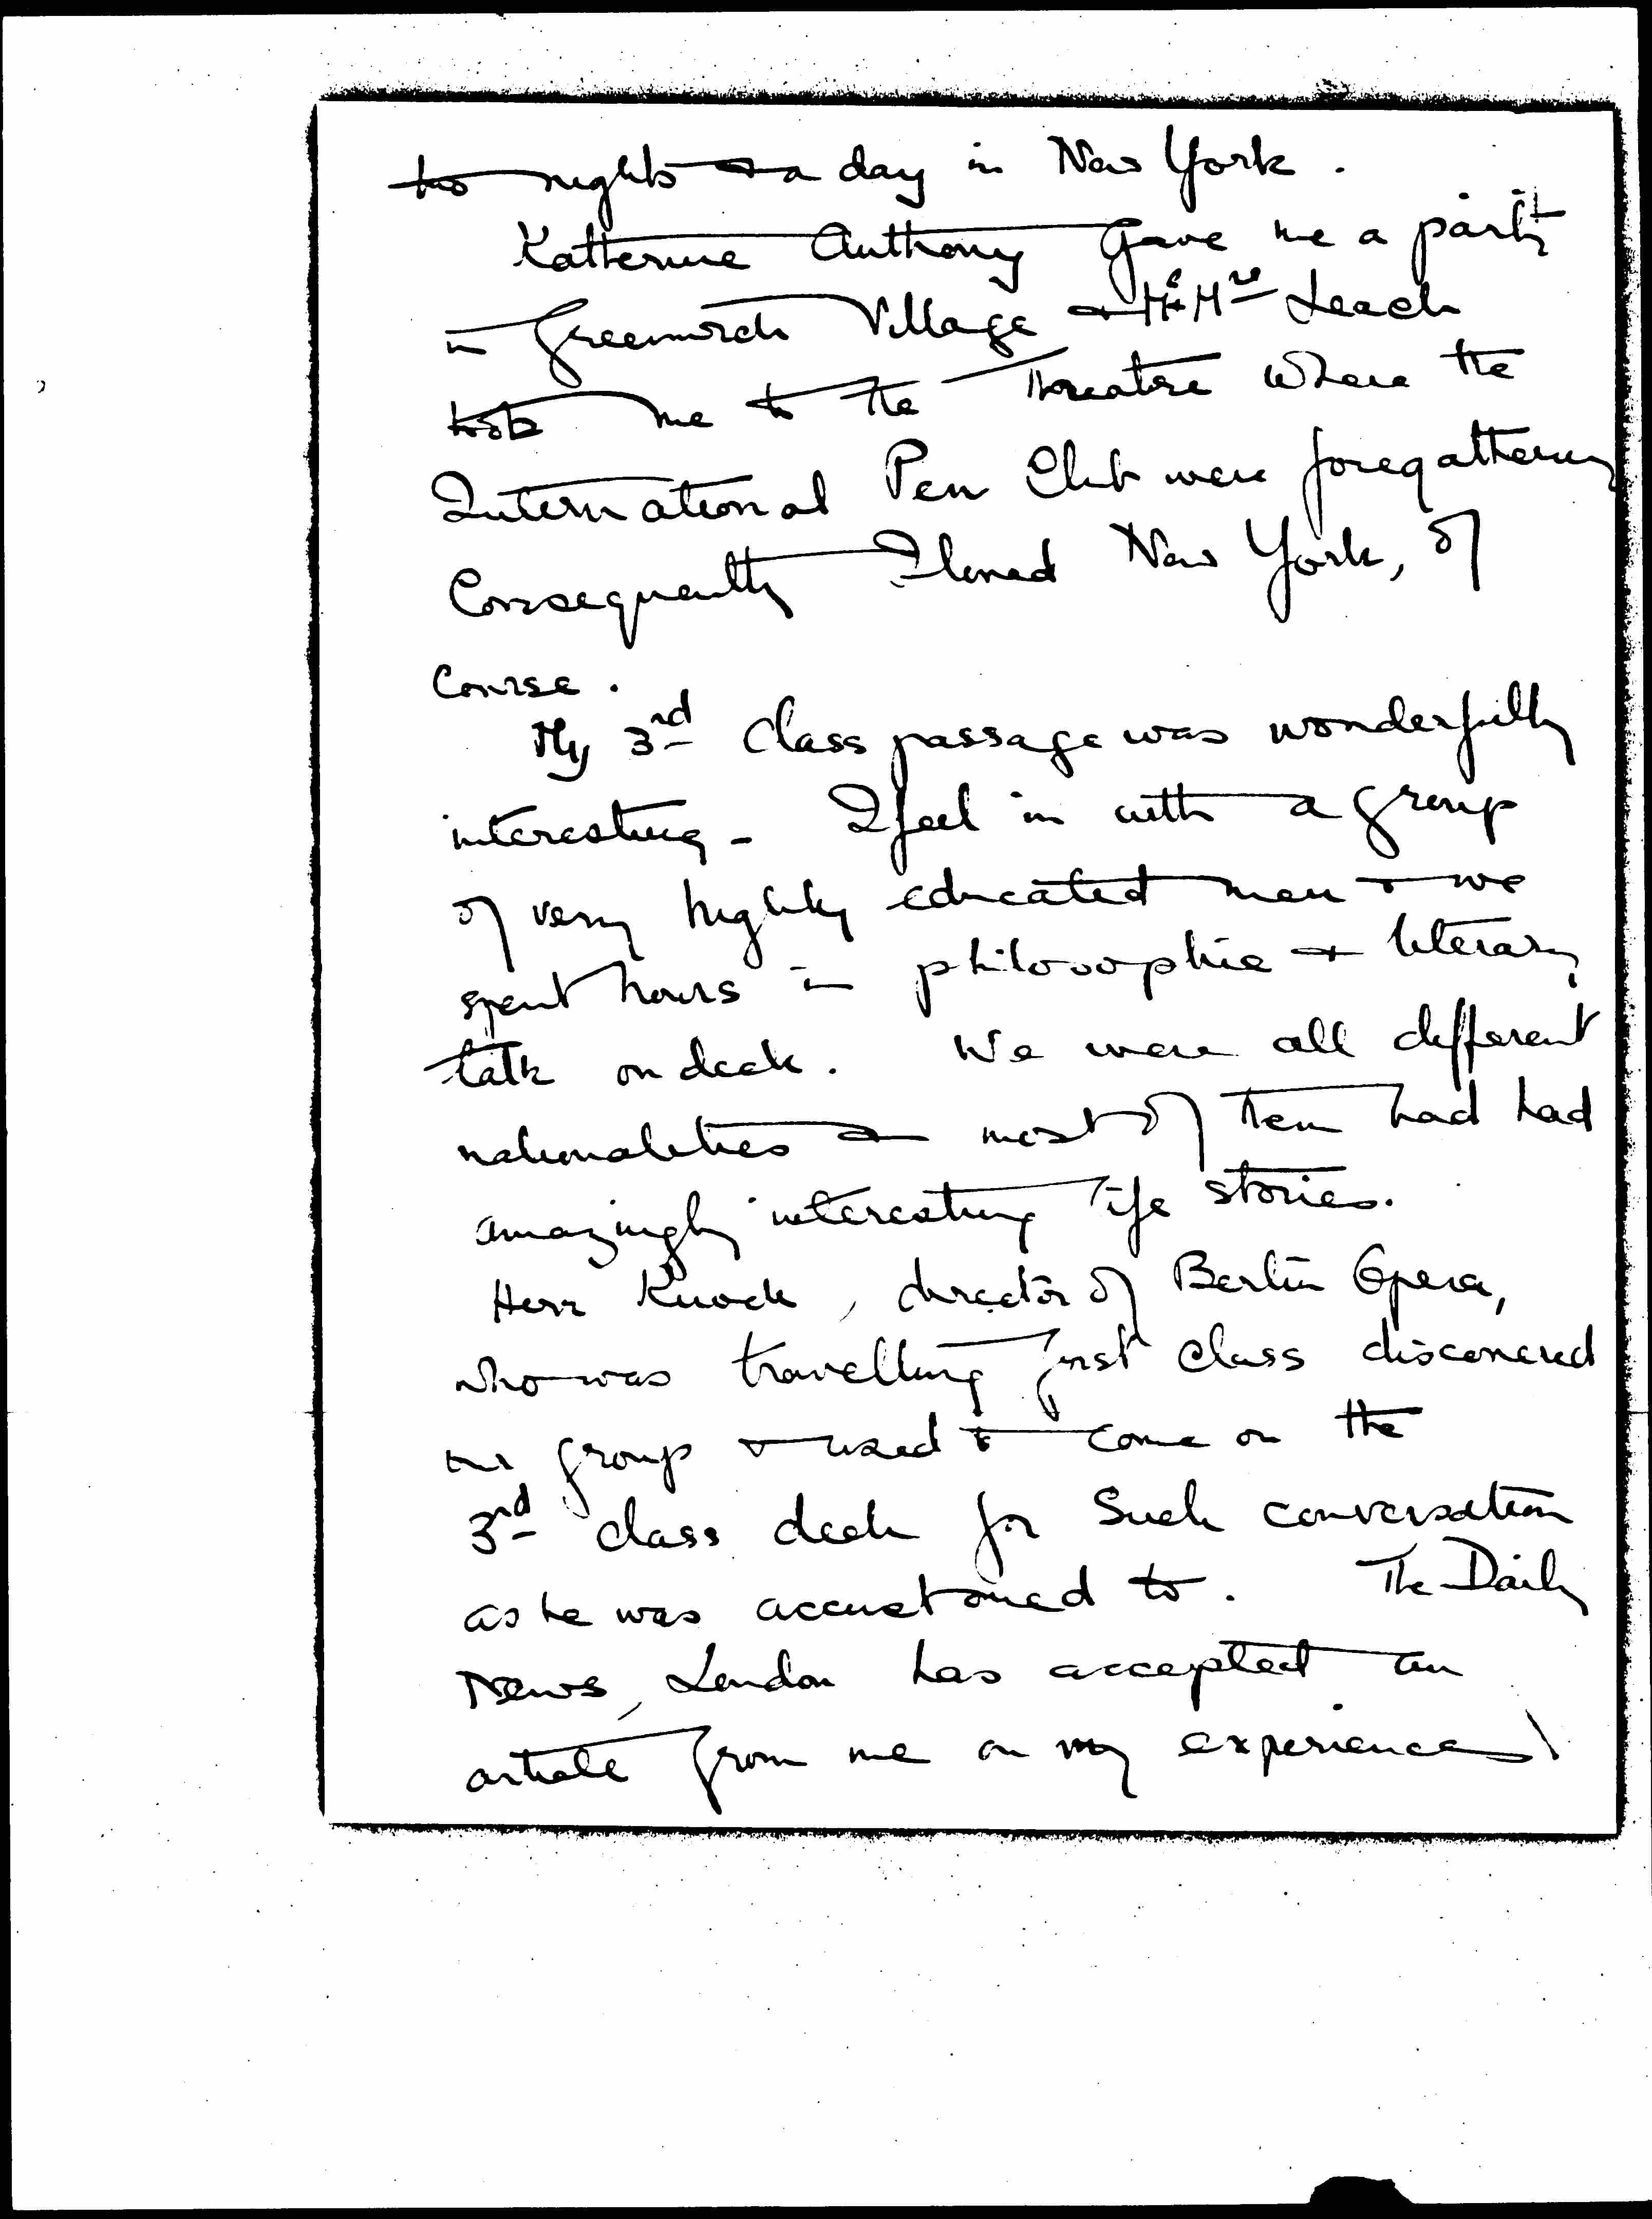 two nights & a day in New York.
Katherine Anthony gave me a party
in Greenwich Village & Mr & Mrs Leach
took me to the Theatre where the
International Pen Club were foregathering
Consequently I loved New York, of
course.
My 3rd class passage was wonderfully
interesting - I feel in with a group
of very highly educated men & we
spent hours in philosophic & literary
talk on deck. We were all different
nationalities & most of them had had
amazingly interesting life stories.
Herr Knoch, director of Berlin Opera,
who was travelling first class discovered
our group & used to come on the
3rd class deck for such conversation
as he was accustomed to. The Daily
News, London has accepted an
article from me on my experiences!